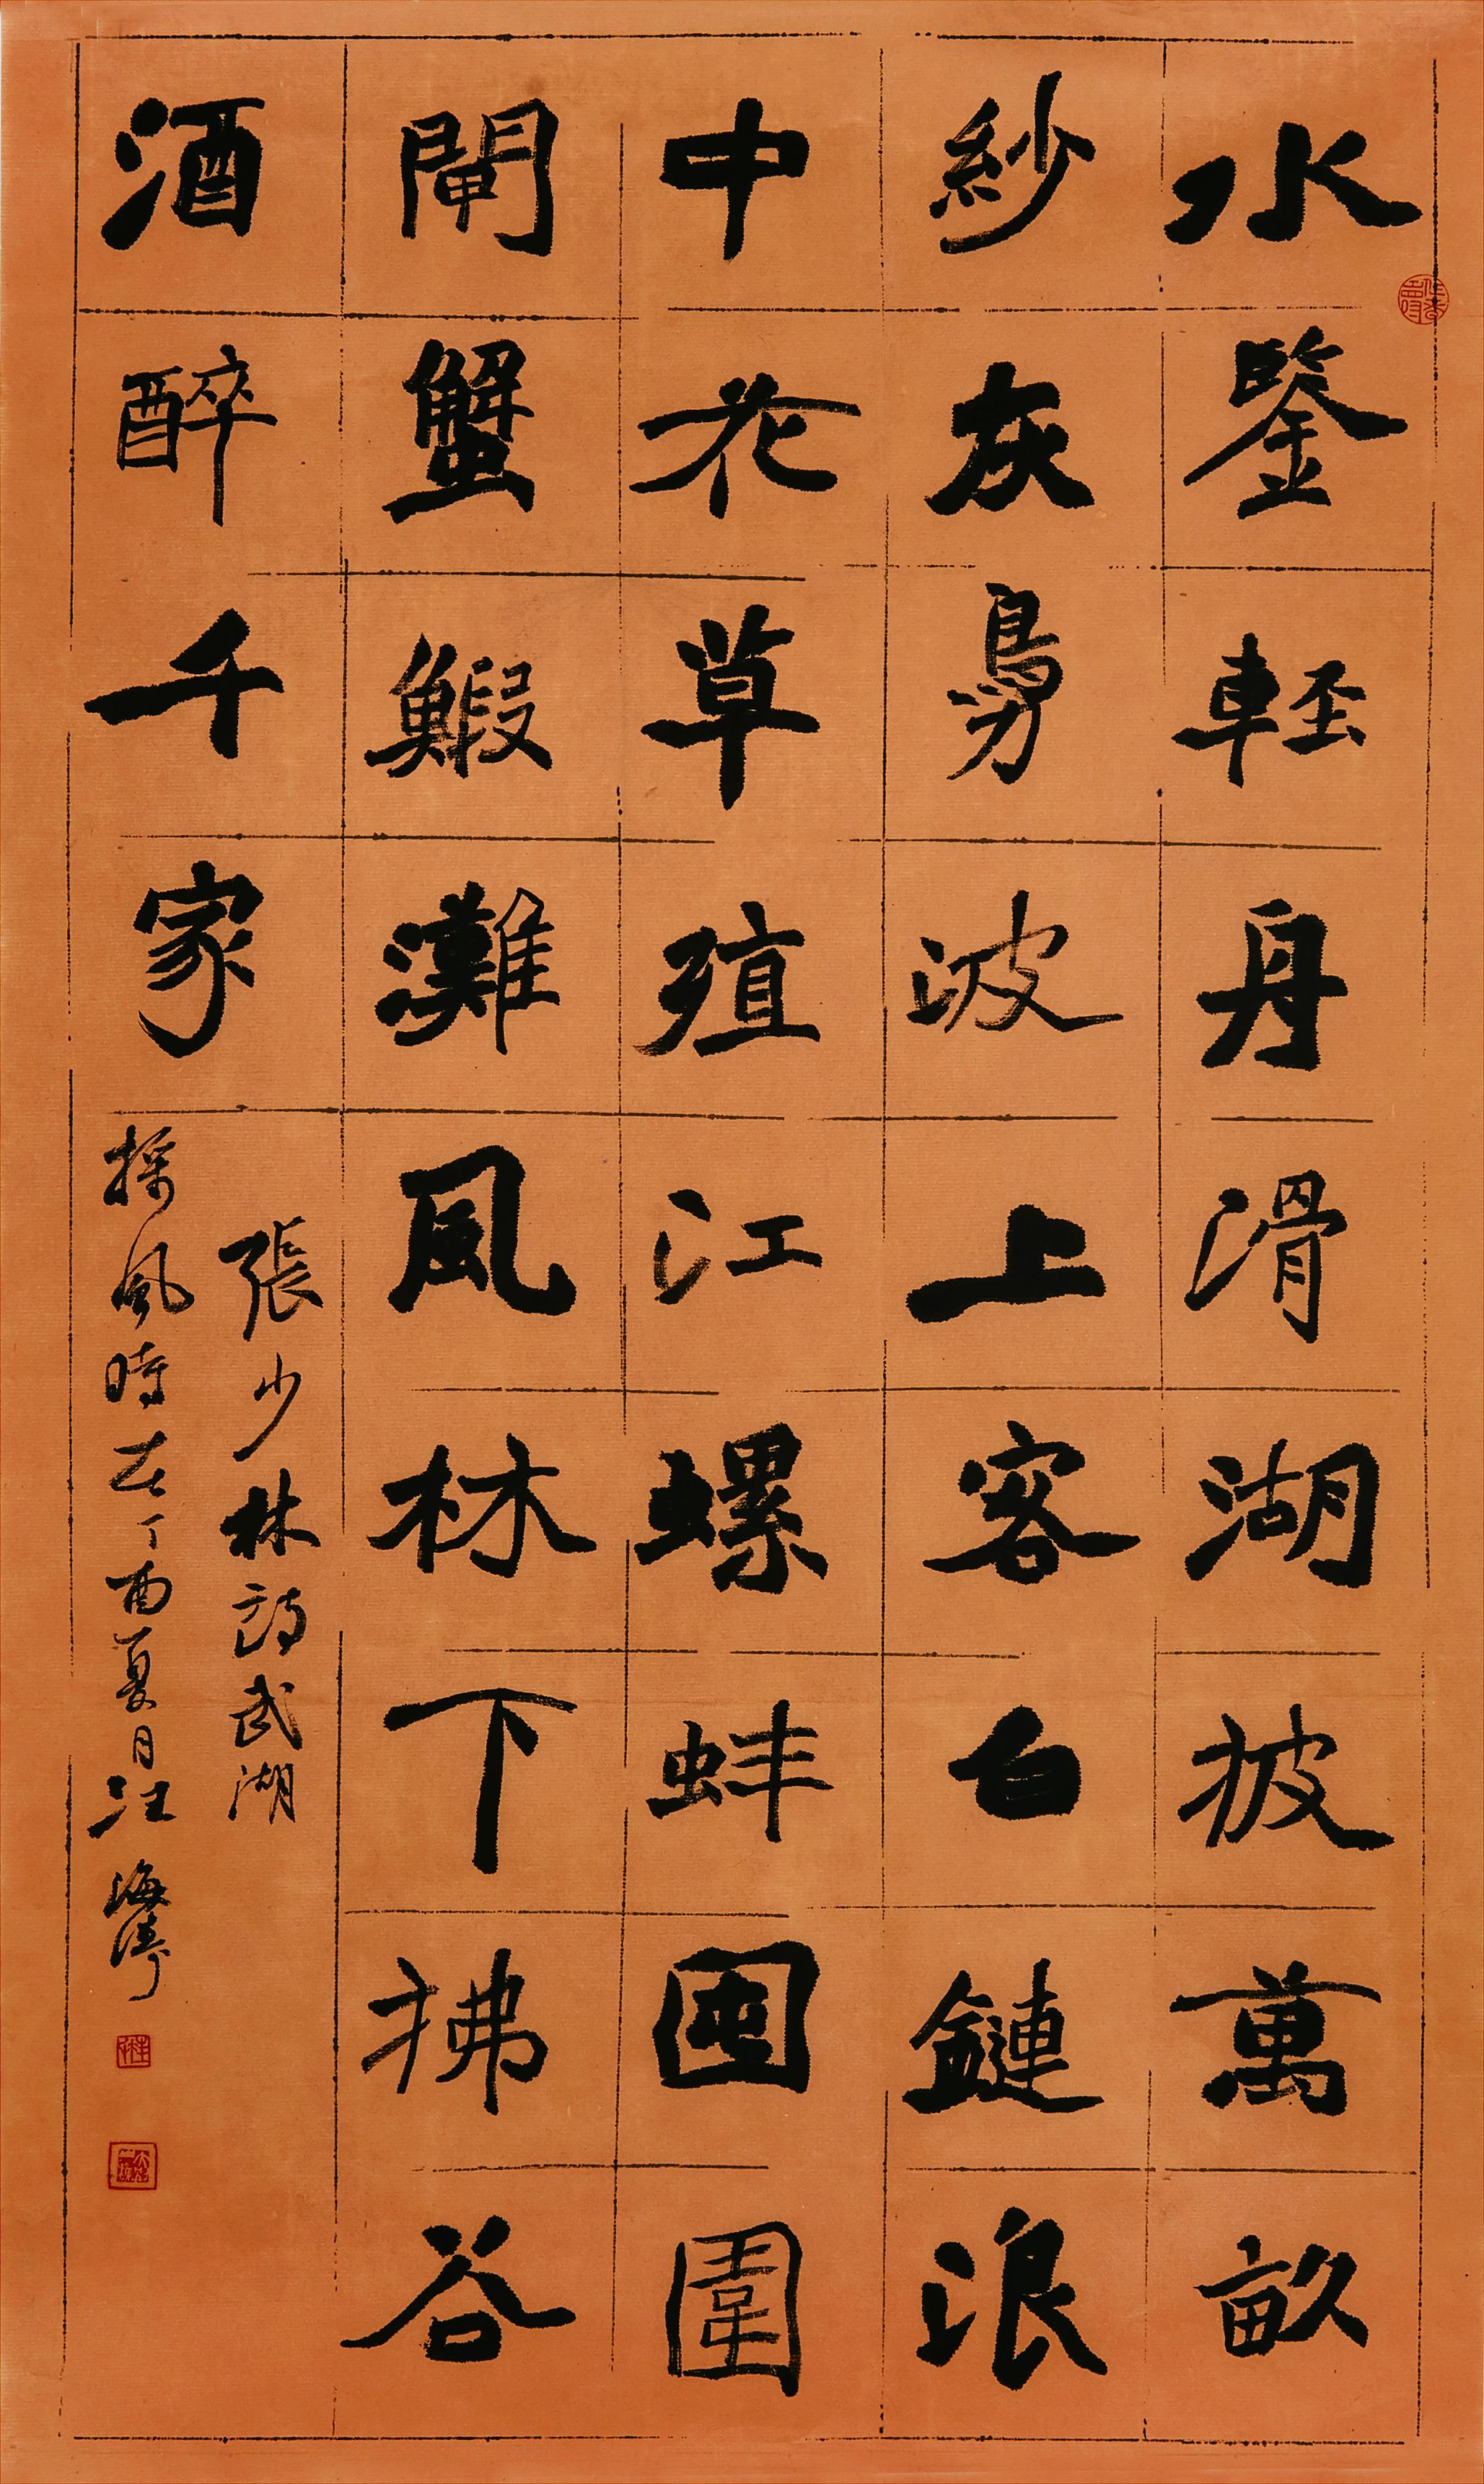 水鑒輕舟滑湖披萬畝
紗灰鳧波上客白鏈浪
中花草殖江螺蚌囤圍
閘蟹鰕灘風林下拂谷
酒醉千家
張少林詩武湖
採風時在丁酉夏月汪海濤